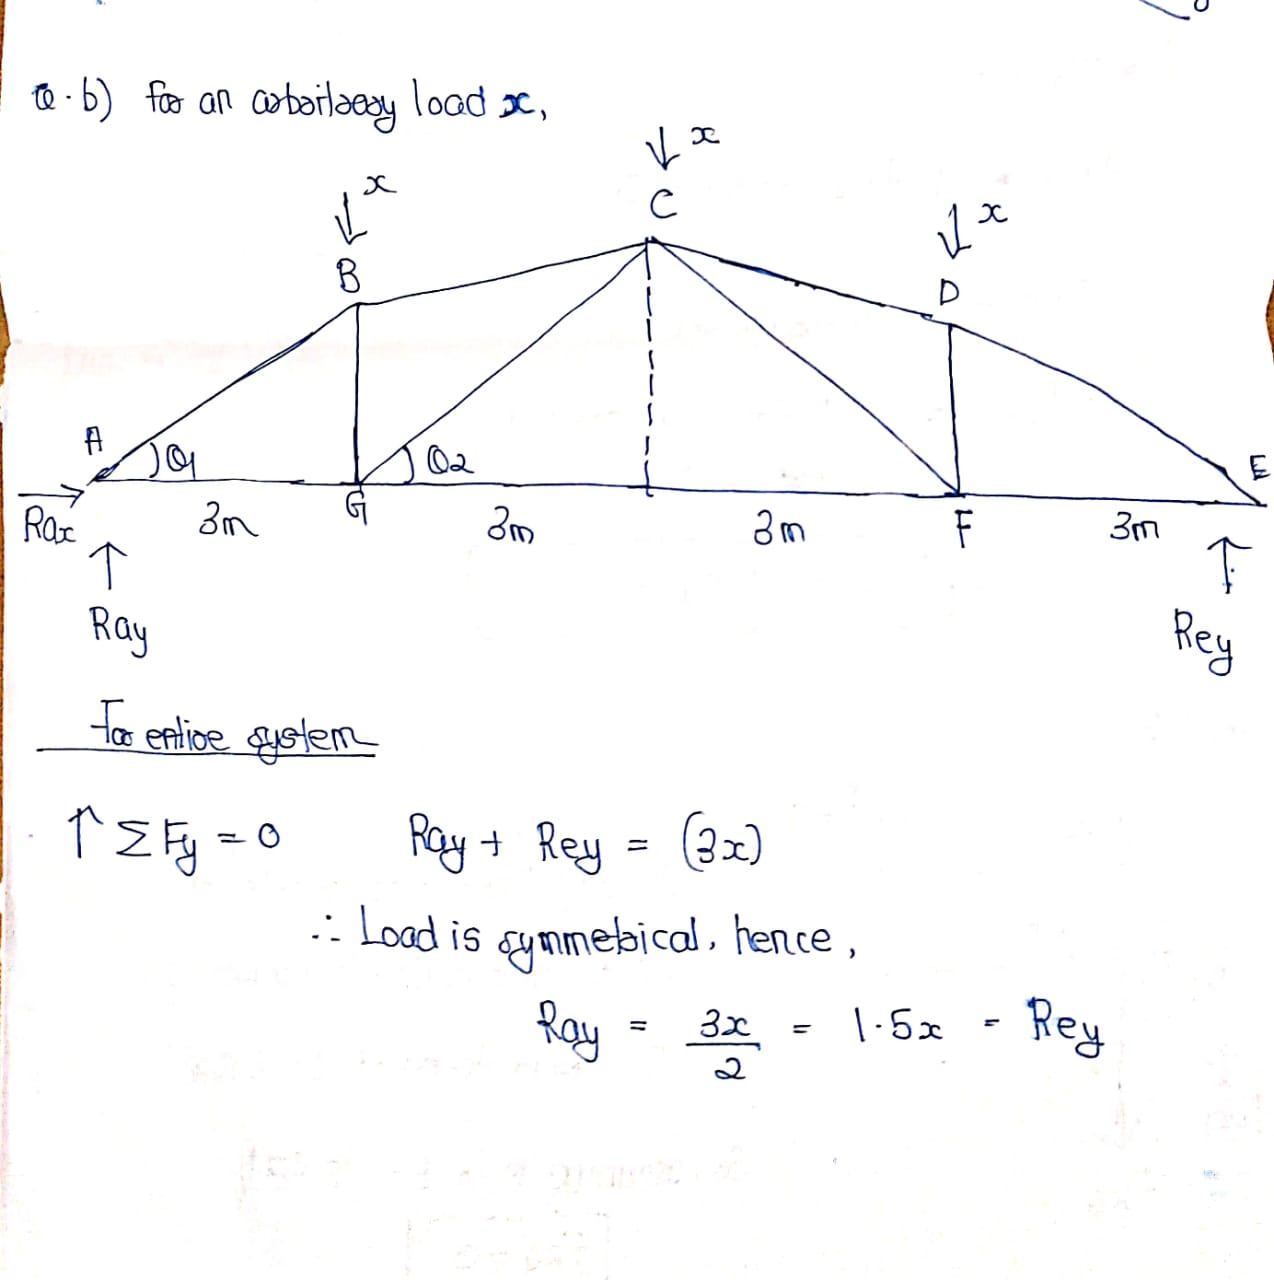 Q.b) for an arbitrary load x,
x
x
C
x
B
D
A
θ1
θ2
E
Rax
3m
G
3m
3m
F
3m
Ray
Rey
For entire system
↑ΣFy = 0 Ray + Rey = (3x)
∴ Load is symmetrical, hence,
Ray = 3x/2 = 1.5x = Rey